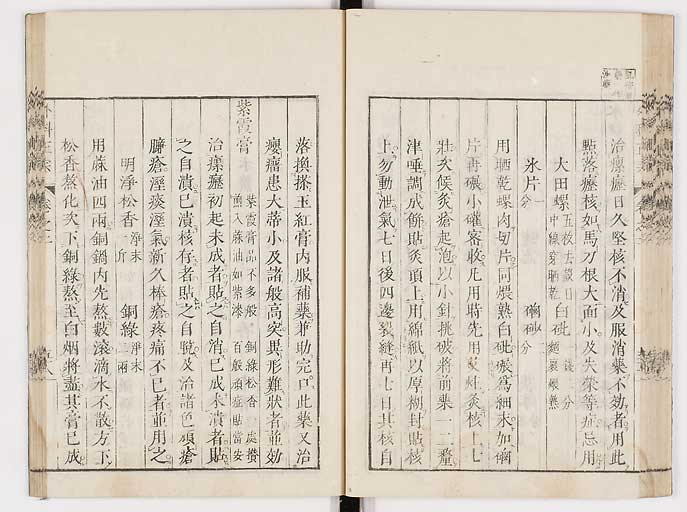 治瘰癧日久堅核不消及服消藥不効者用此
點落瘰核如馬刀根大面小及失榮等症忌用
大田螺 五枚去殼日中線穿晒乾 白砒 麵裹煨熟
氷片 一分 硇砂 二分
用晒乾螺肉切片同煨熟白砒碾為細末加硇
片再碾小罐密收凡用時先用艾炷灸核上七
壯次候灸瘡起泡以小針挑破將前藥一二釐
津唾調成餅貼灸頂上用綿紙以厚糊封貼核
上勿動泄氣七日後四邊裂縫再七日其核自
落換搽玉紅膏內服補藥兼助完口此藥又治
癭瘤患大蒂小及諸般高突異形難狀者並効
紫霞膏 紫霞膏品不多般 銅綠松香一處攢 熬入蔴油如紫漆 百般頑症貼當安
治瘰癧初起未成者貼之自消已成未潰者貼
之自潰已潰核存者貼之自脫及治諸色頑瘡
臁瘡溼痰溼氣新久棒瘡疼痛不已者並用之
明淨松香 淨末二斤 銅綠 淨末二兩
用蔴油四兩銅鍋內先熬數滾滴水不散方下
松香熬化次下銅綠熬至白烟將盡其膏已成
外科正宗 卷之二